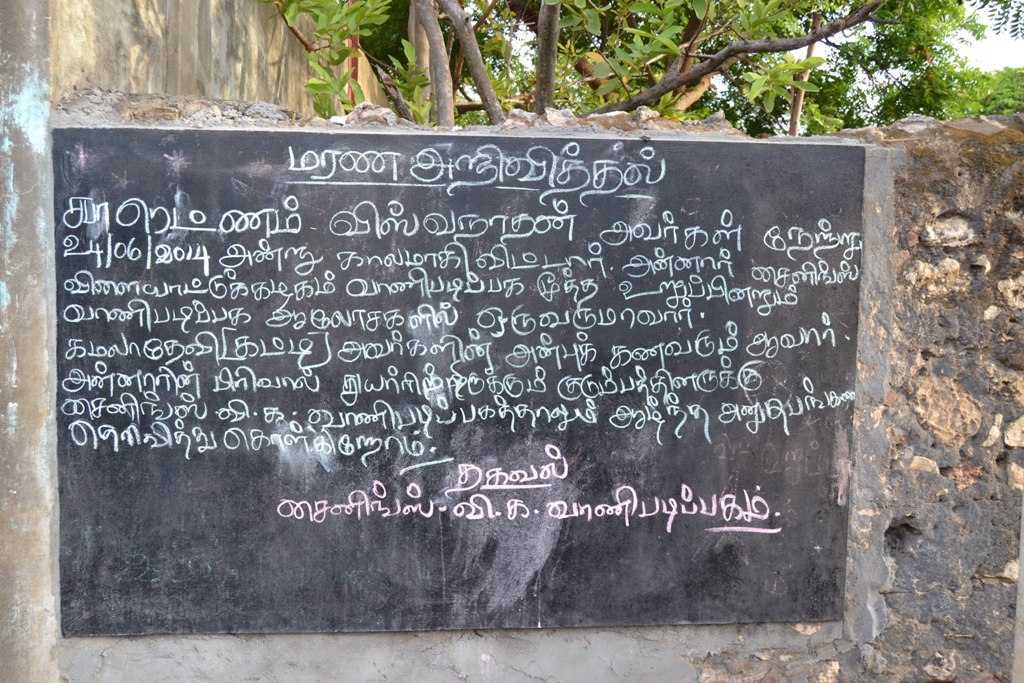 மரண அறிவித்தல்
விஸ்வநாதன் அவர்கள் நேற்று
24/06/2014 அன்று காலமாகிவிட்டார். அன்னார் சைனிங்ஸ்
விளையாட்டுக்கழகம் வாணிபடிப்பக மூத்த உறுப்பினரும்
வாணிபடிப்பக ஆலோசகளில் ஒருவருமாவார்.
கமலாதேவி(கட்டி) அவர்களின் அன்புக் கணவரும் ஆவார்.
அன்னாரின் பிரிவால் துயருற்றிருக்கும் குடும்பத்தினருக்கு
சைனிங்ஸ் வி.க. வாணிபடிப்பகத்தாலும் ஆழ்ந்த
தெரிவித்து கொள்கின்றோம்.
தகவல்
சைனிங்ஸ்-வி.க. வாணிபடிப்பகம்.